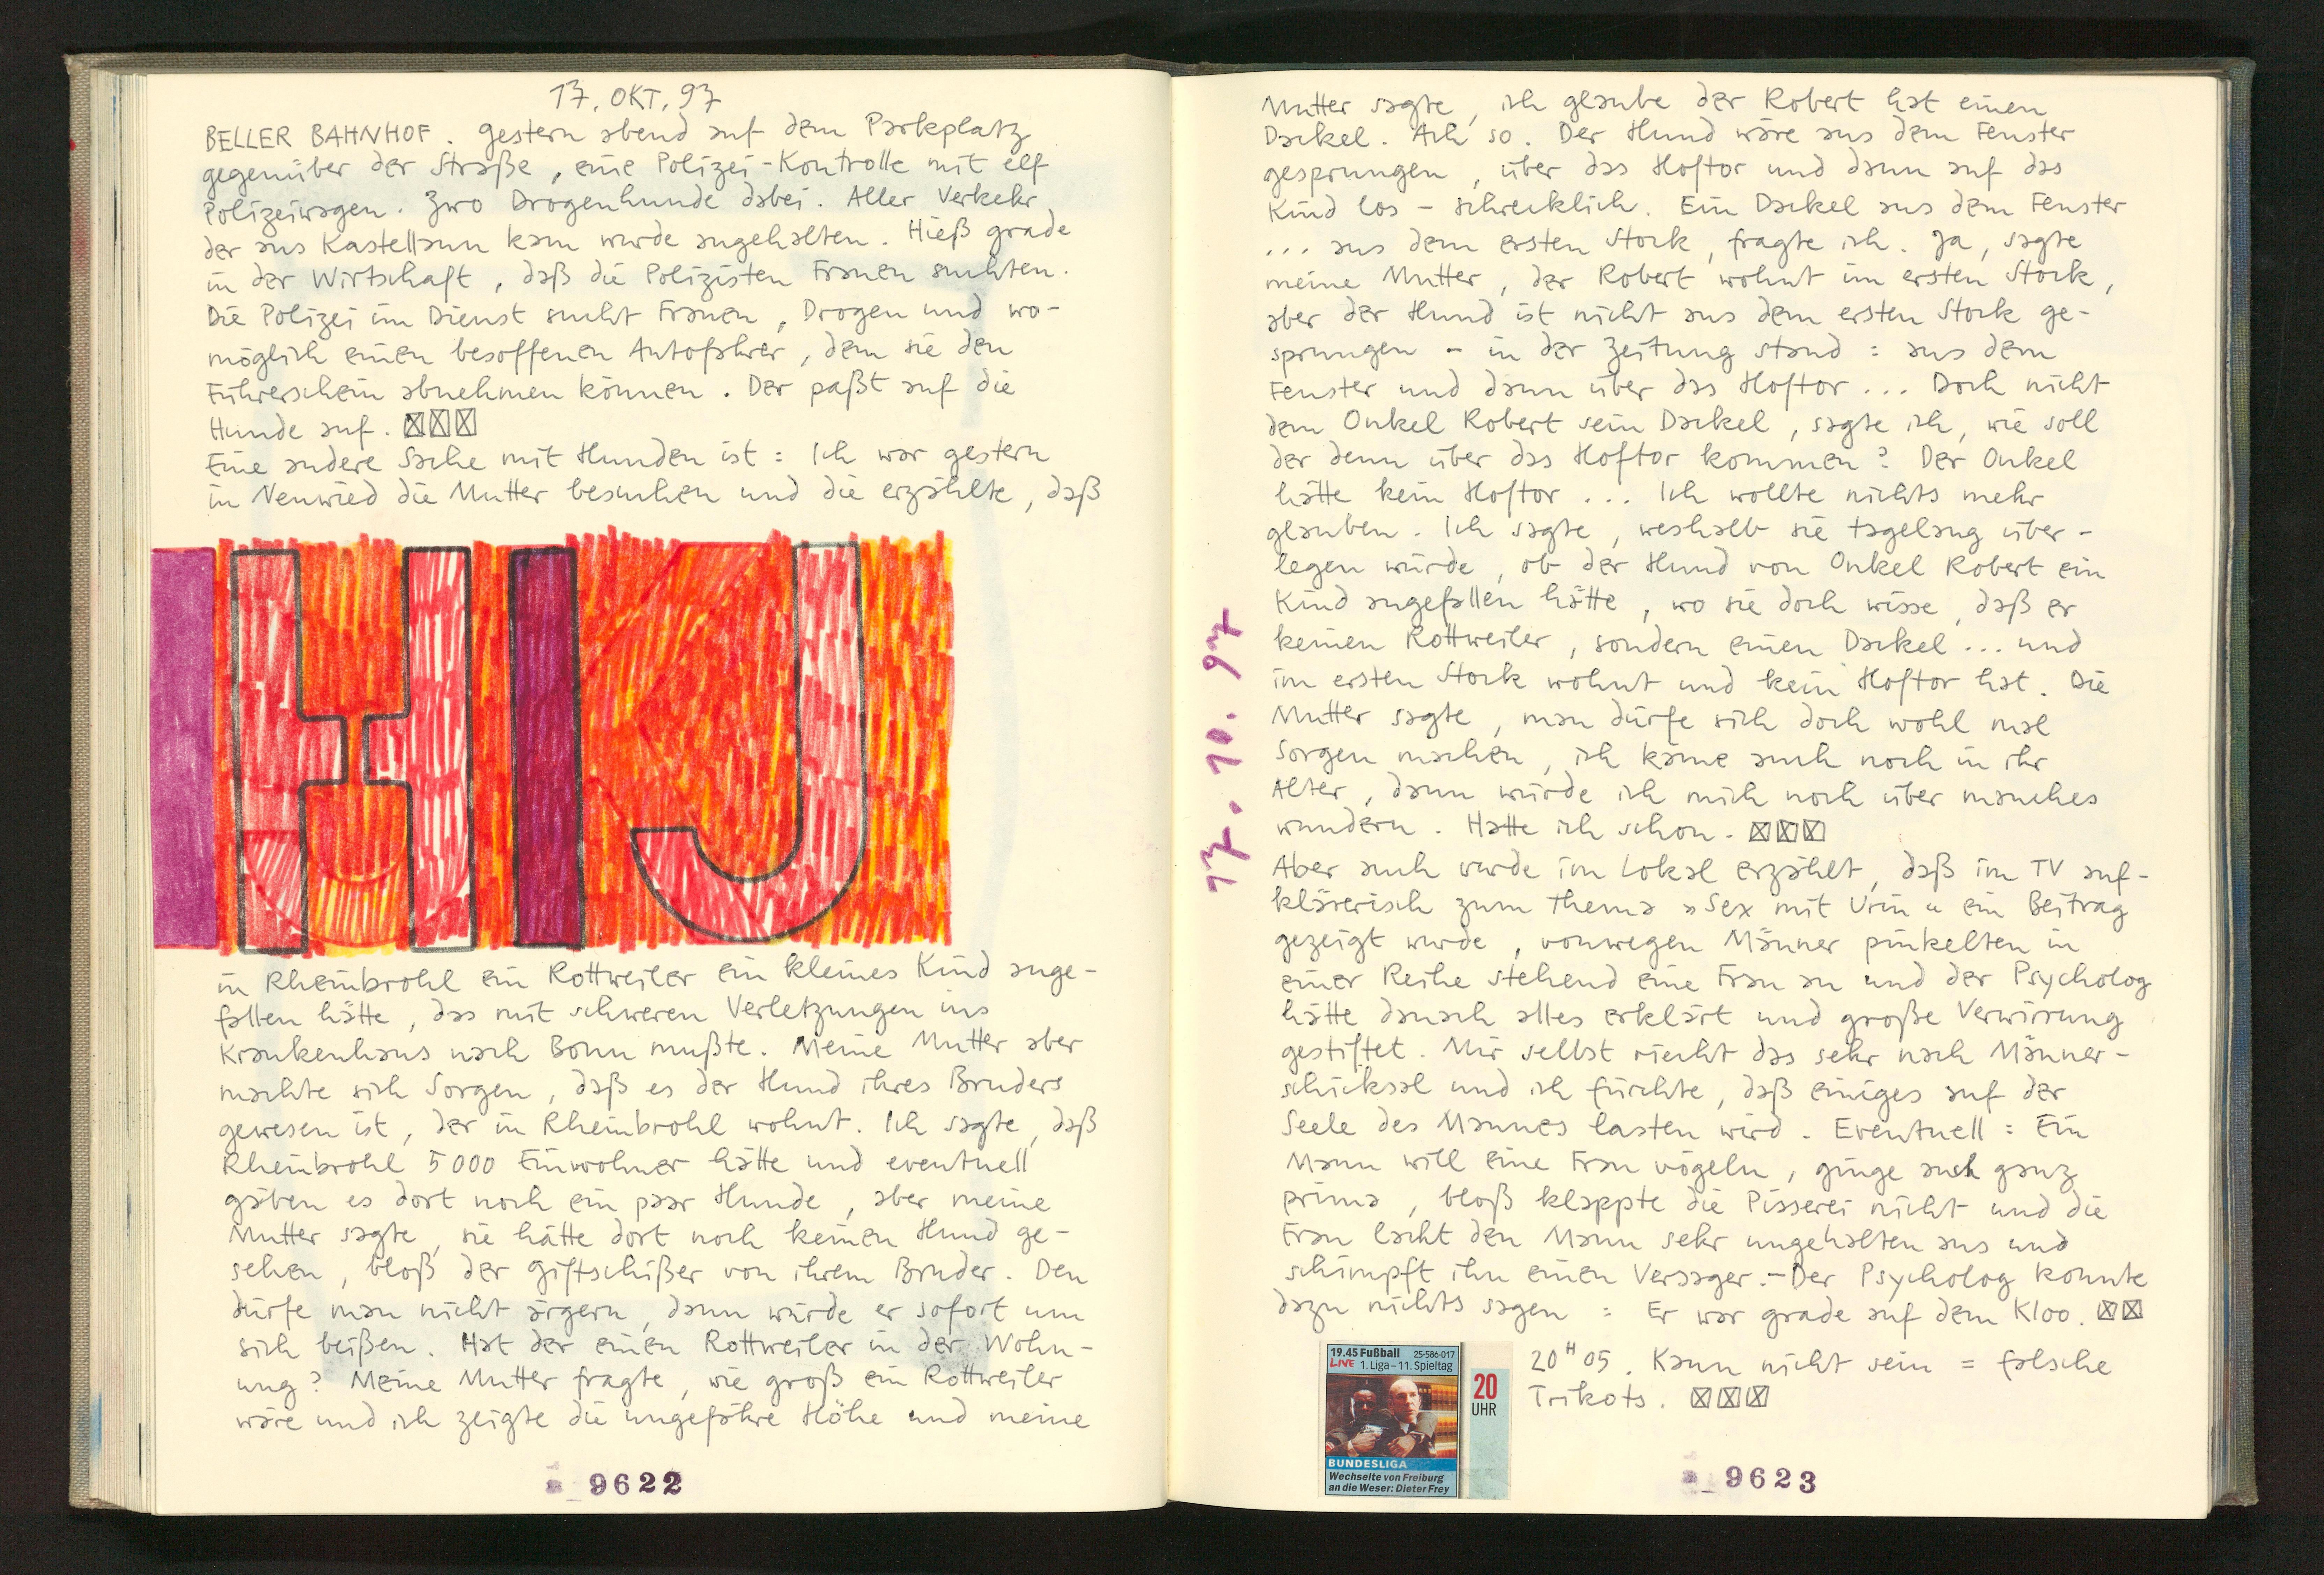 17. OKT. 97
BELLER BAHNHOF. Gestern abend auf dem Parkplatz
gegenüber der Straße, eine Polizei-Kontrolle mit elf
Polizeiwagen. Zwo Drogenhunde dabei. Aller Verkehr
der aus Kastellaun kam wurde angehalten. Hieß grade
in der Wirtschaft, daß die Polizisten Frauen suchten.
Die Polizei im Dienst sucht Frauen, Drogen und wo-
möglich einen besoffenen Autofahrer, dem sie den
Führerschein abnehmen können. Der paßt auf die
Hunde auf. ☒☒☒
Eine andere Sache mit Hunden ist: Ich war gestern
in Neuwied die Mutter besuchen und die erzählte, daß
HIKJ
in Rheinbrohl ein Rottweiler ein kleines Kind ange-
fallen hätte, das mit schweren Verletzungen ins
Krankenhaus nach Bonn mußte. Meine Mutter aber
machte sich Sorgen, daß es der Hund ihres Bruders
gewesen ist, der in Rheinbrohl wohnt. Ich sagte, daß
Rheinbrohl 5000 Einwohner hätte und eventuell
gäben es dort noch ein paar Hunde, aber meine
Mutter sagte, sie hätte dort noch keinen Hund ge-
sehen, bloß der Giftschißer von ihrem Bruder. Den
dürfe man nicht ärgern, dann würde er sofort um
sich beißen. Hat der einen Rottweiler in der Wohn-
ung? Meine Mutter fragte, wie groß ein Rottweiler
wäre und ich zeigte die ungefähre Höhe und meine
9622
Mutter sagte, ich glaube der Robert hat einen
Dackel. Ach so. Der Hund wäre aus dem Fenster
gesprungen, über das Hoftor und dann auf das
Kind los - schrecklich. Ein Dackel aus dem Fenster
... aus dem ersten Stock, fragte ich. Ja, sagte
meine Mutter, der Robert wohnt im ersten Stock,
aber der Hund ist nicht aus dem ersten Stock ge-
sprungen - in der Zeitung stand: aus dem
Fenster und dann über das Hoftor... Doch nicht
dem Onkel Robert sein Dackel, sagte ich, wie soll
der denn über das Hoftor kommen? Der Onkel
hätte kein Hoftor... Ich wollte nichts mehr
glauben. Ich sagte, weshalb sie tagelang über-
legen würde, ob der Hund von Onkel Robert ein
Kind angefallen hätte, wo sie doch wisse, daß er
keinen Rottweiler, sondern einen Dackel... und
im ersten Stock wohnt und kein Hoftor hat. Die
Mutter sagte, man dürfe sich doch wohl mal
Sorgen machen, ich käme auch noch in ihr
Alter, dann würde ich mich noch über manches
wundern. Hatte ich schon. ☒☒☒
17. 10. 97
Aber auch wurde im Lokal erzählt, daß im TV auf-
klärerisch zum Thema »Sex mit Urin« ein Beitrag
gezeigt wurde, vonwegen Männer pinkelten in
einer Reihe stehend eine Frau an und der Psycholog
hätte danach alles erklärt und große Verwirrung
gestiftet. Mir selbst riecht das sehr nach Männer-
schicksal und ich fürchte, daß einiges auf der
Seele des Mannes lasten wird. Eventuell: Ein
Mann will eine Frau vögeln, ginge auch ganz
prima, bloß klappte die Pisserei nicht und die
Frau lacht den Mann sehr ungehalten aus und
schimpft ihn einen Versager.-Der Psycholog konnte
dazu nichts sagen: Er war grade auf dem Kloo. ☒☒
19.45 Fußball 25-586-017
LIVE 1. Liga–11. Spieltag
20
UHR
BUNDESLIGA
Wechselte von Freiburg
an die Weser: Dieter Frey
20H05. Kann nicht sein = falsche
Trikots. ☒☒☒
9623